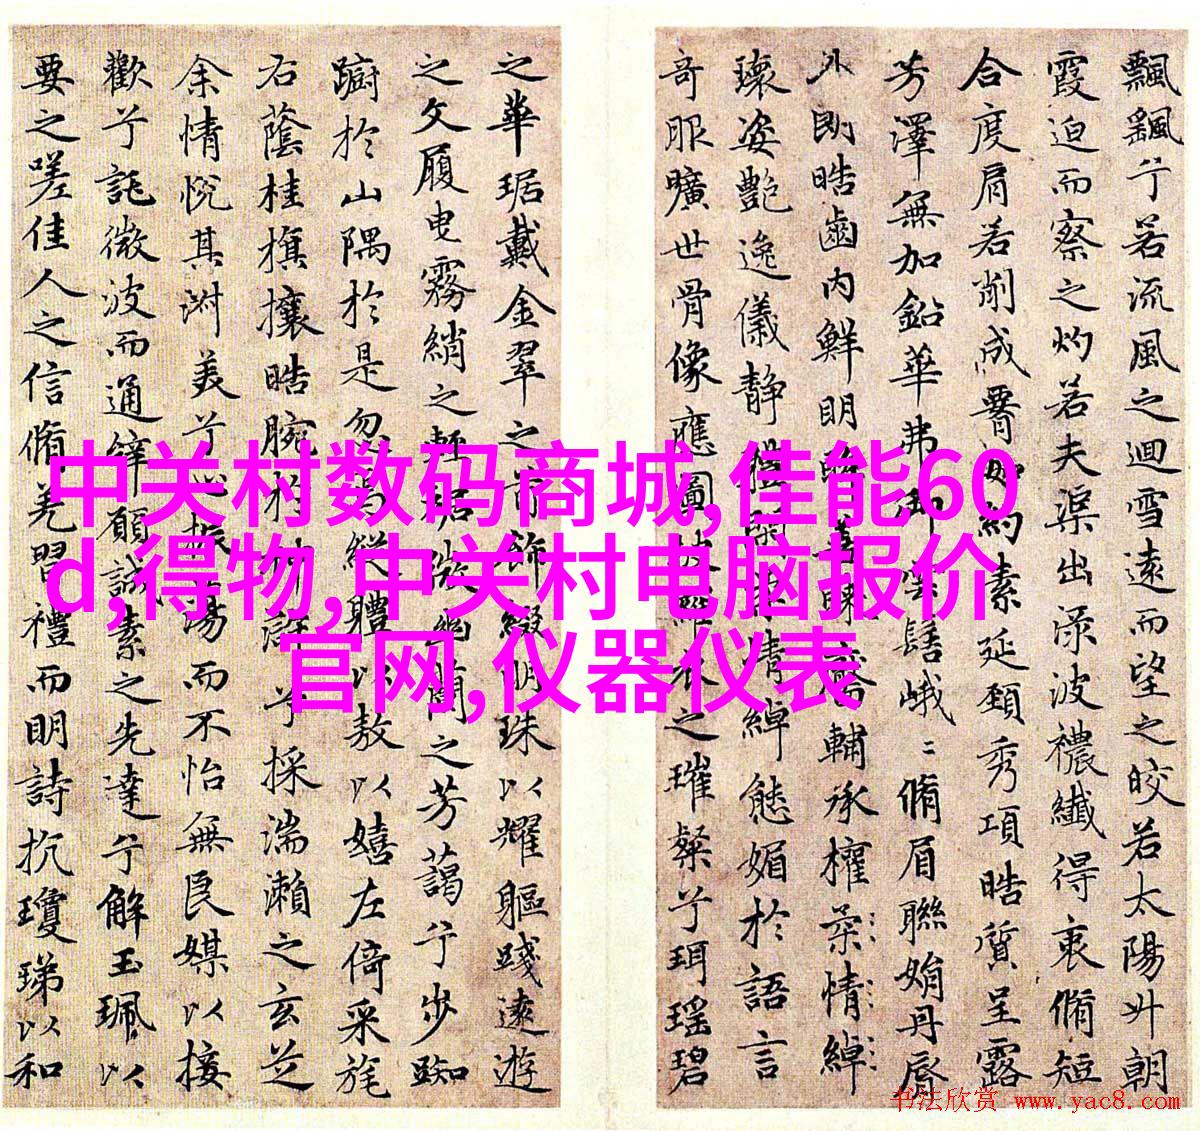 飄颻兮若流風之迴雪遠而望之皎若太陽升朝
霞迫而察之灼若夫渠出渌波穠纖得衷脩短
合度肩若削成如約素延頸秀項皓質呈露
芳澤無加鉛華弗御雲髻峨〻脩眉聯娟丹唇
外朗皓齒內鮮明眸善睞靨輔承權柔情綽
瓌姿艷逸儀静體閑柔情綽態媚於語言
奇服曠世骨像應圖披羅衣之璀粲兮珥瑶碧
之華琚戴金翠之首飾綴明珠以耀軀踐遠遊
之文履曳霧綃之輕裾微幽蘭之芳藹兮步踟
躕於山隅於是忽焉縱體以敖以嬉左倚采旄
右蔭桂旗攘皓腕於神滸兮採湍瀨之玄芝
余情悅其淑美兮心振蕩而不怡無良媒以接
歡兮託微波而通辭願誠素之先達兮解玉珮以
要之嗟佳人之信脩羌習禮而明詩抗瓊珶以和
中关村数码商城,佳能60
d,得物,中关村电脑报价
官网,仪器仪表
书法欣赏 www.yac8.com